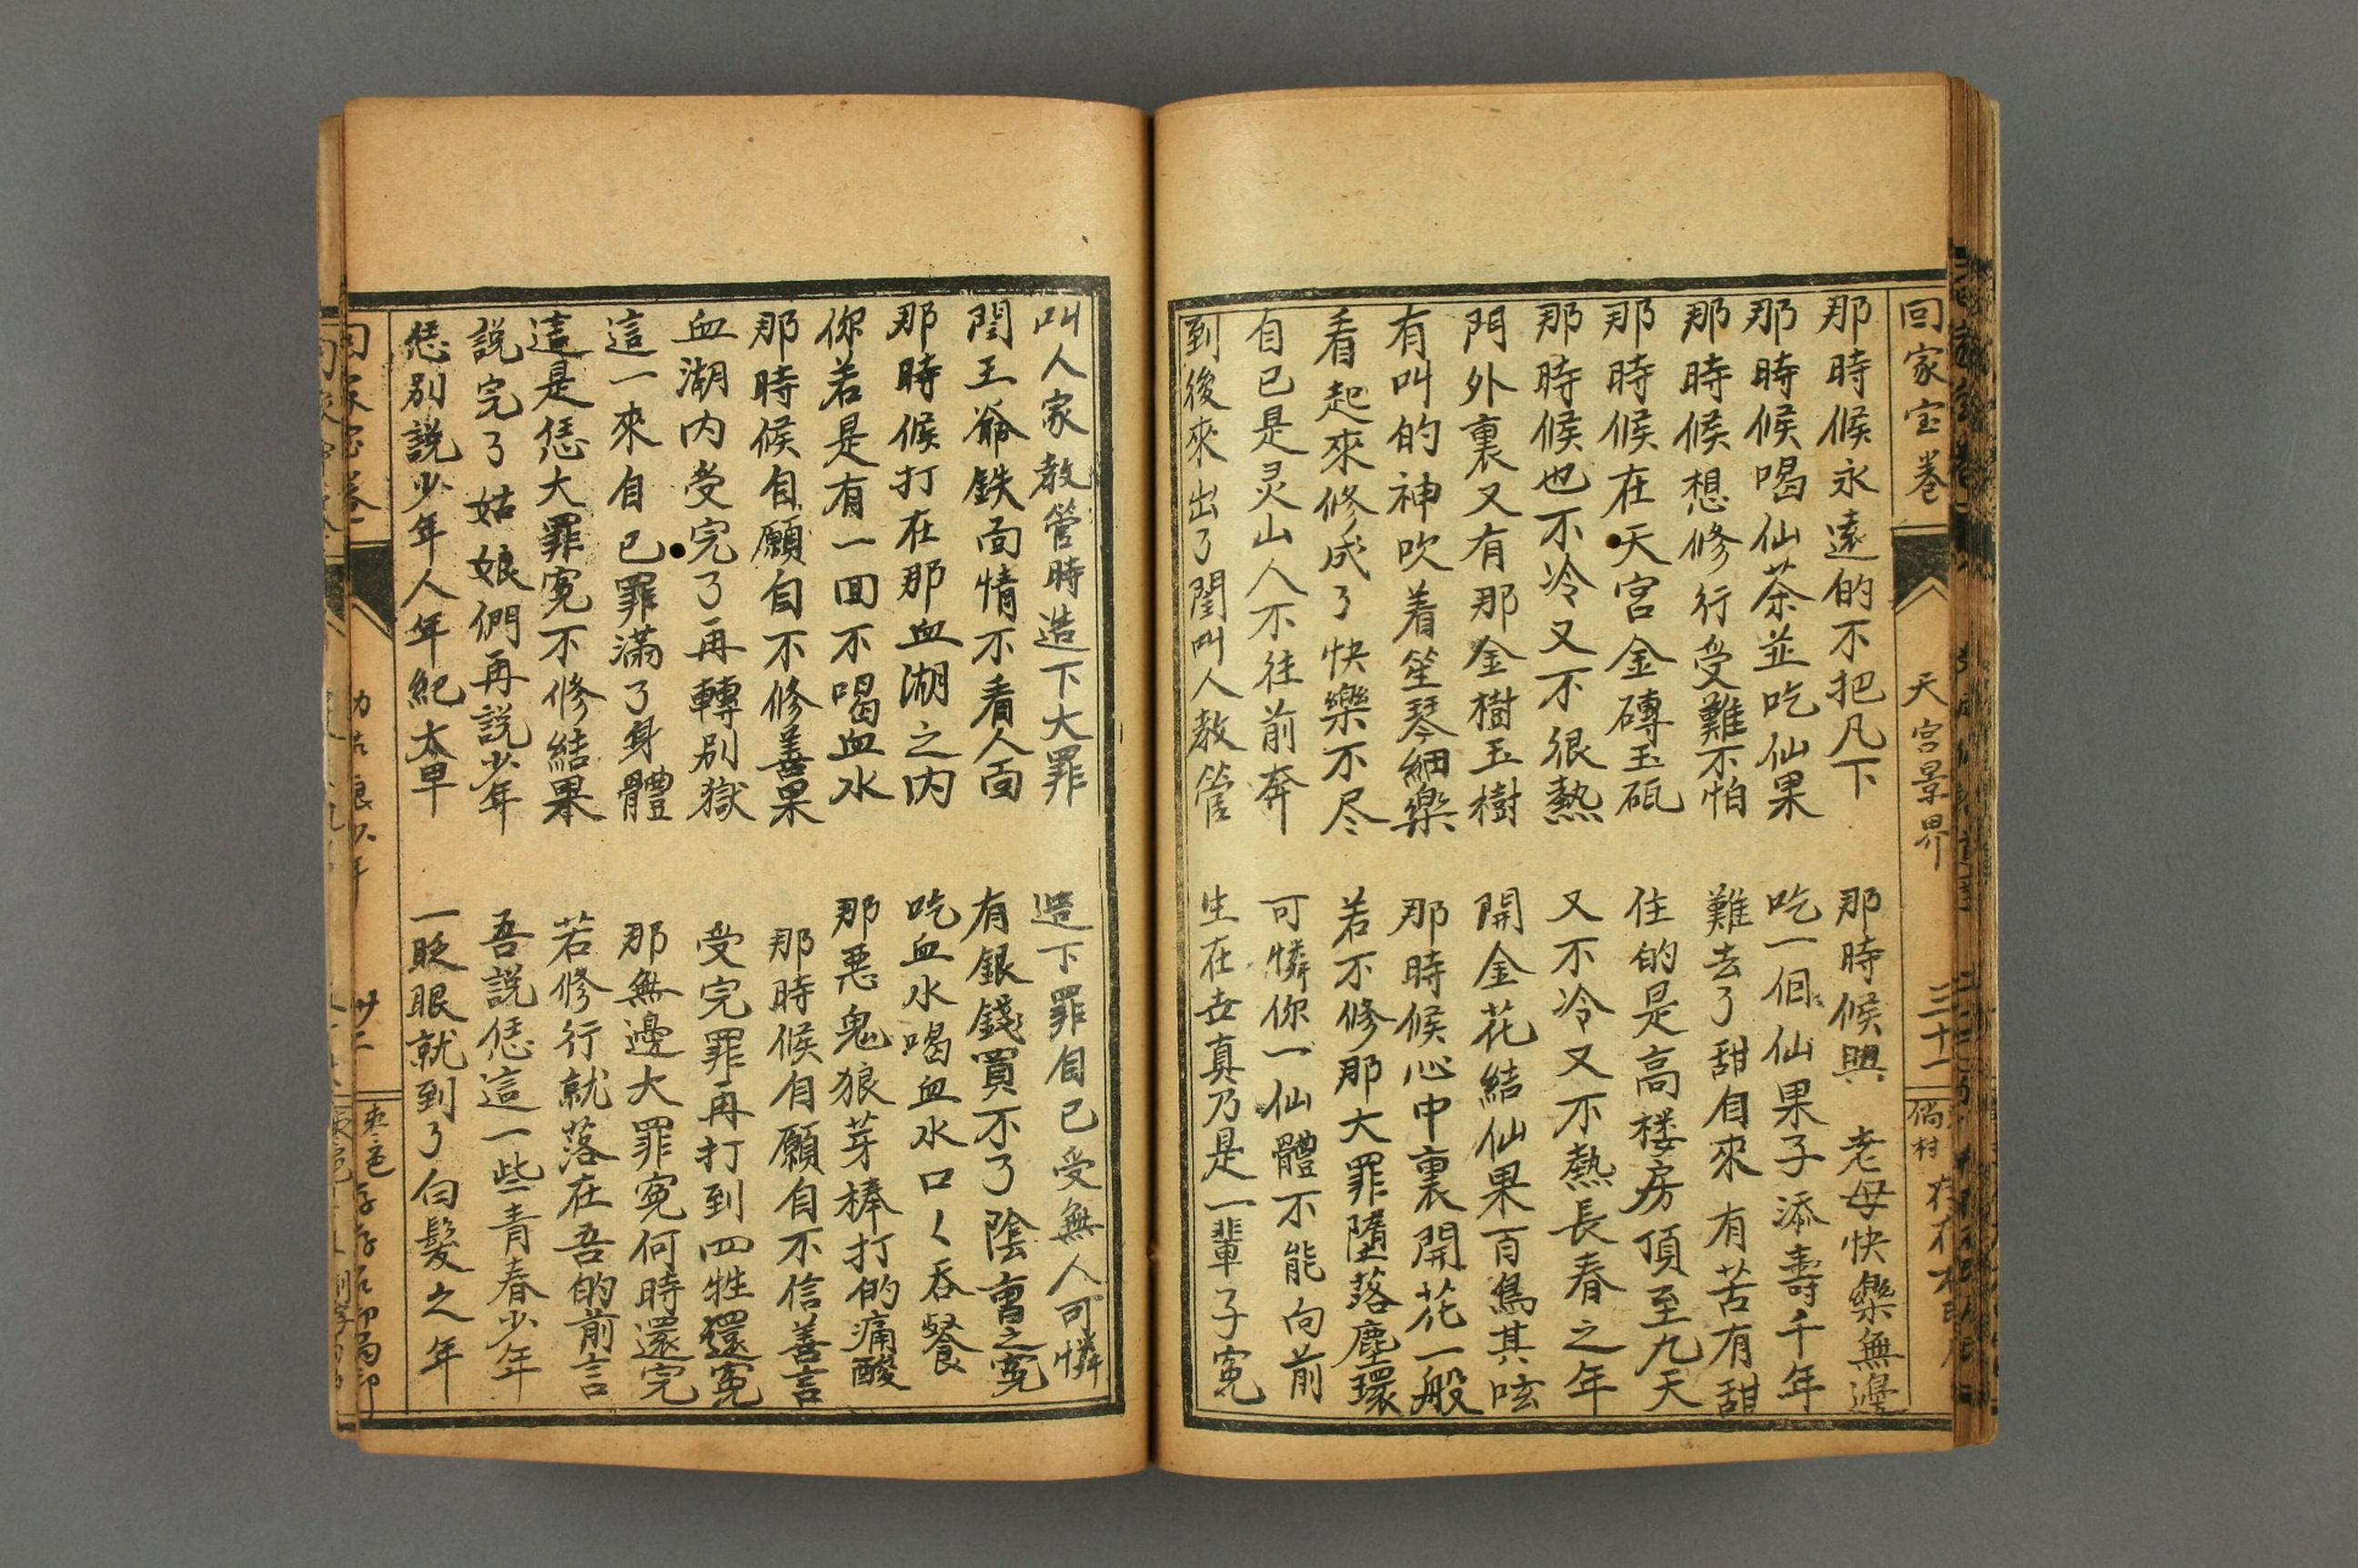 回家宝巻
天宮景界
三十一
那時候永遠的不把凡下　那時候與　老母快樂無邊
那時候喝仙茶並吃仙果　吃一個仙果子添壽千年
那時候想修行受難不怕　難去了甜自來有苦有甜
那時候在天宮金磚玉砙　住的是高楼房頂至九天
那時候也不冷又不很熱　又不冷又不熱長春之年
門外裏又有那金樹玉樹　開金花結仙果百鳥其呟
有叫的神吹着笙琴細樂　那時候心中裏開花一般
看起來修成了快樂不尽　若不修那大罪墮落塵環
自已是灵山人不往前奔　可憐你一仙體不能向前
到後來出了閨叫人教管　生在世真乃是一輩子寃
叫人家教管時造下大罪　造下罪自已受無人可憐
閻王爺鉄面情不看人面　有銀錢買不了陰曺之寃
那時候打在那血湖之内　吃血水喝血水口〱吞餐
你若是有一回不喝血水　那悪鬼狼芽棒打的痛酸
那時候自願自不修善果　那時候自願自不信善言
血湖内受完了再轉別獄　受完罪再打到四牲還寃
這一來自已罪滿了身體　那無邊大罪寃何時還完
這是恁大罪寃不修結果　若修行就落在吾的前言
説完了姑娘們再説少年　吾説恁這一些青春少年
恁別説少年人年紀太早　一眨眼就到了白髮之年
廿二